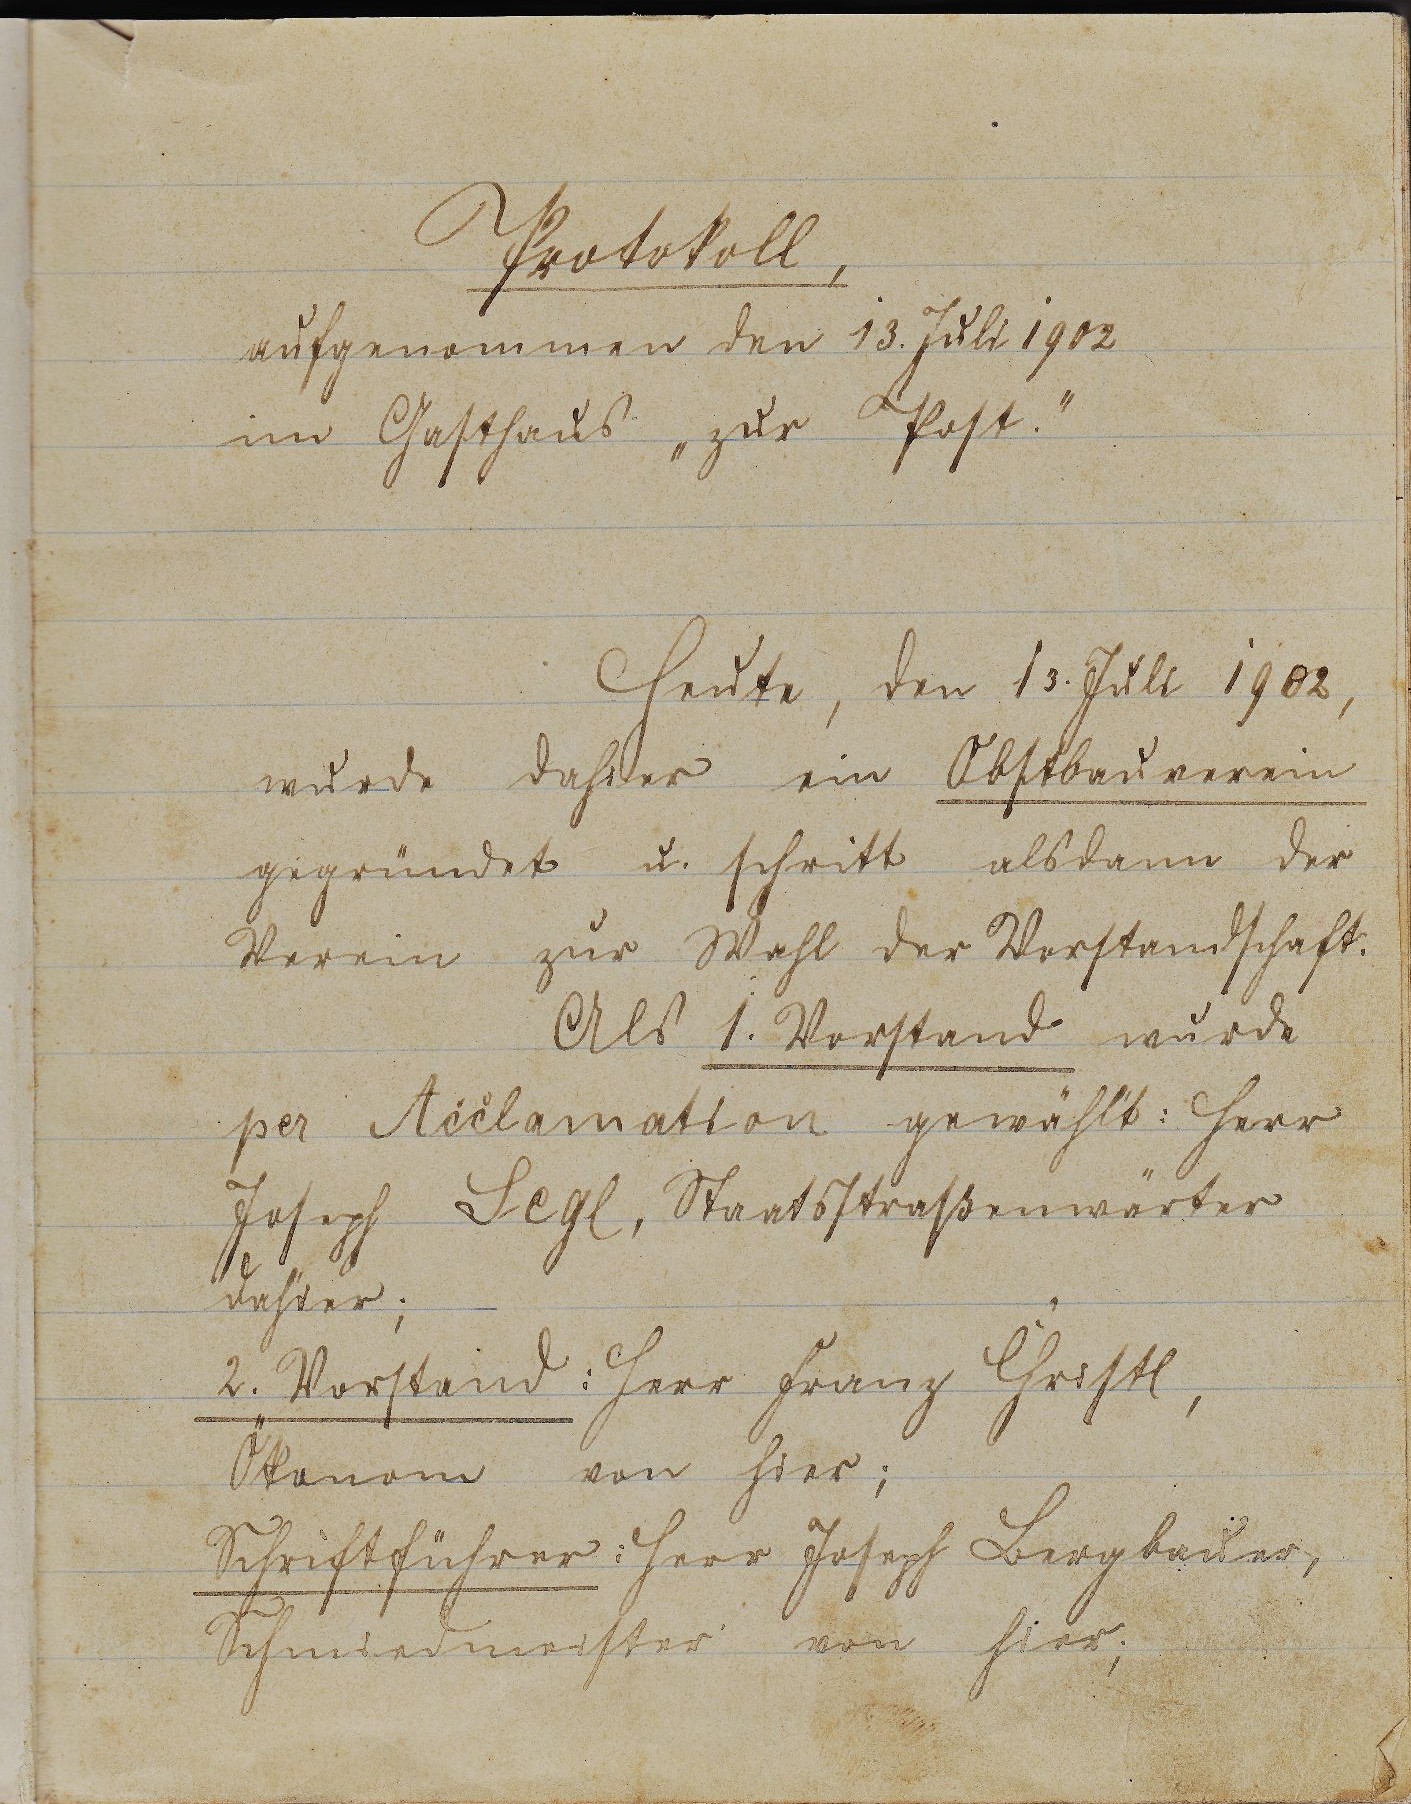 Protokoll,
aufgenommen den 13. Juli 1902
im Gasthaus „zur Post."
Heute, den 13. Juli 1902,
wurde dahier ein Obstbauverein
gegründet u. schritt alsdann der
Verein zur Wahl der Vorstandschaft.
Als 1. Vorstand wurde
per Acclamation gewählt: Herr
Joseph Segl, Staatsstraßenwärter
dahier;
2. Vorstand: Herr Franz Christl,
Ökonom von hier;
Schriftführer: Herr Joseph Bergbauer,
Schmiedmeister von hier;